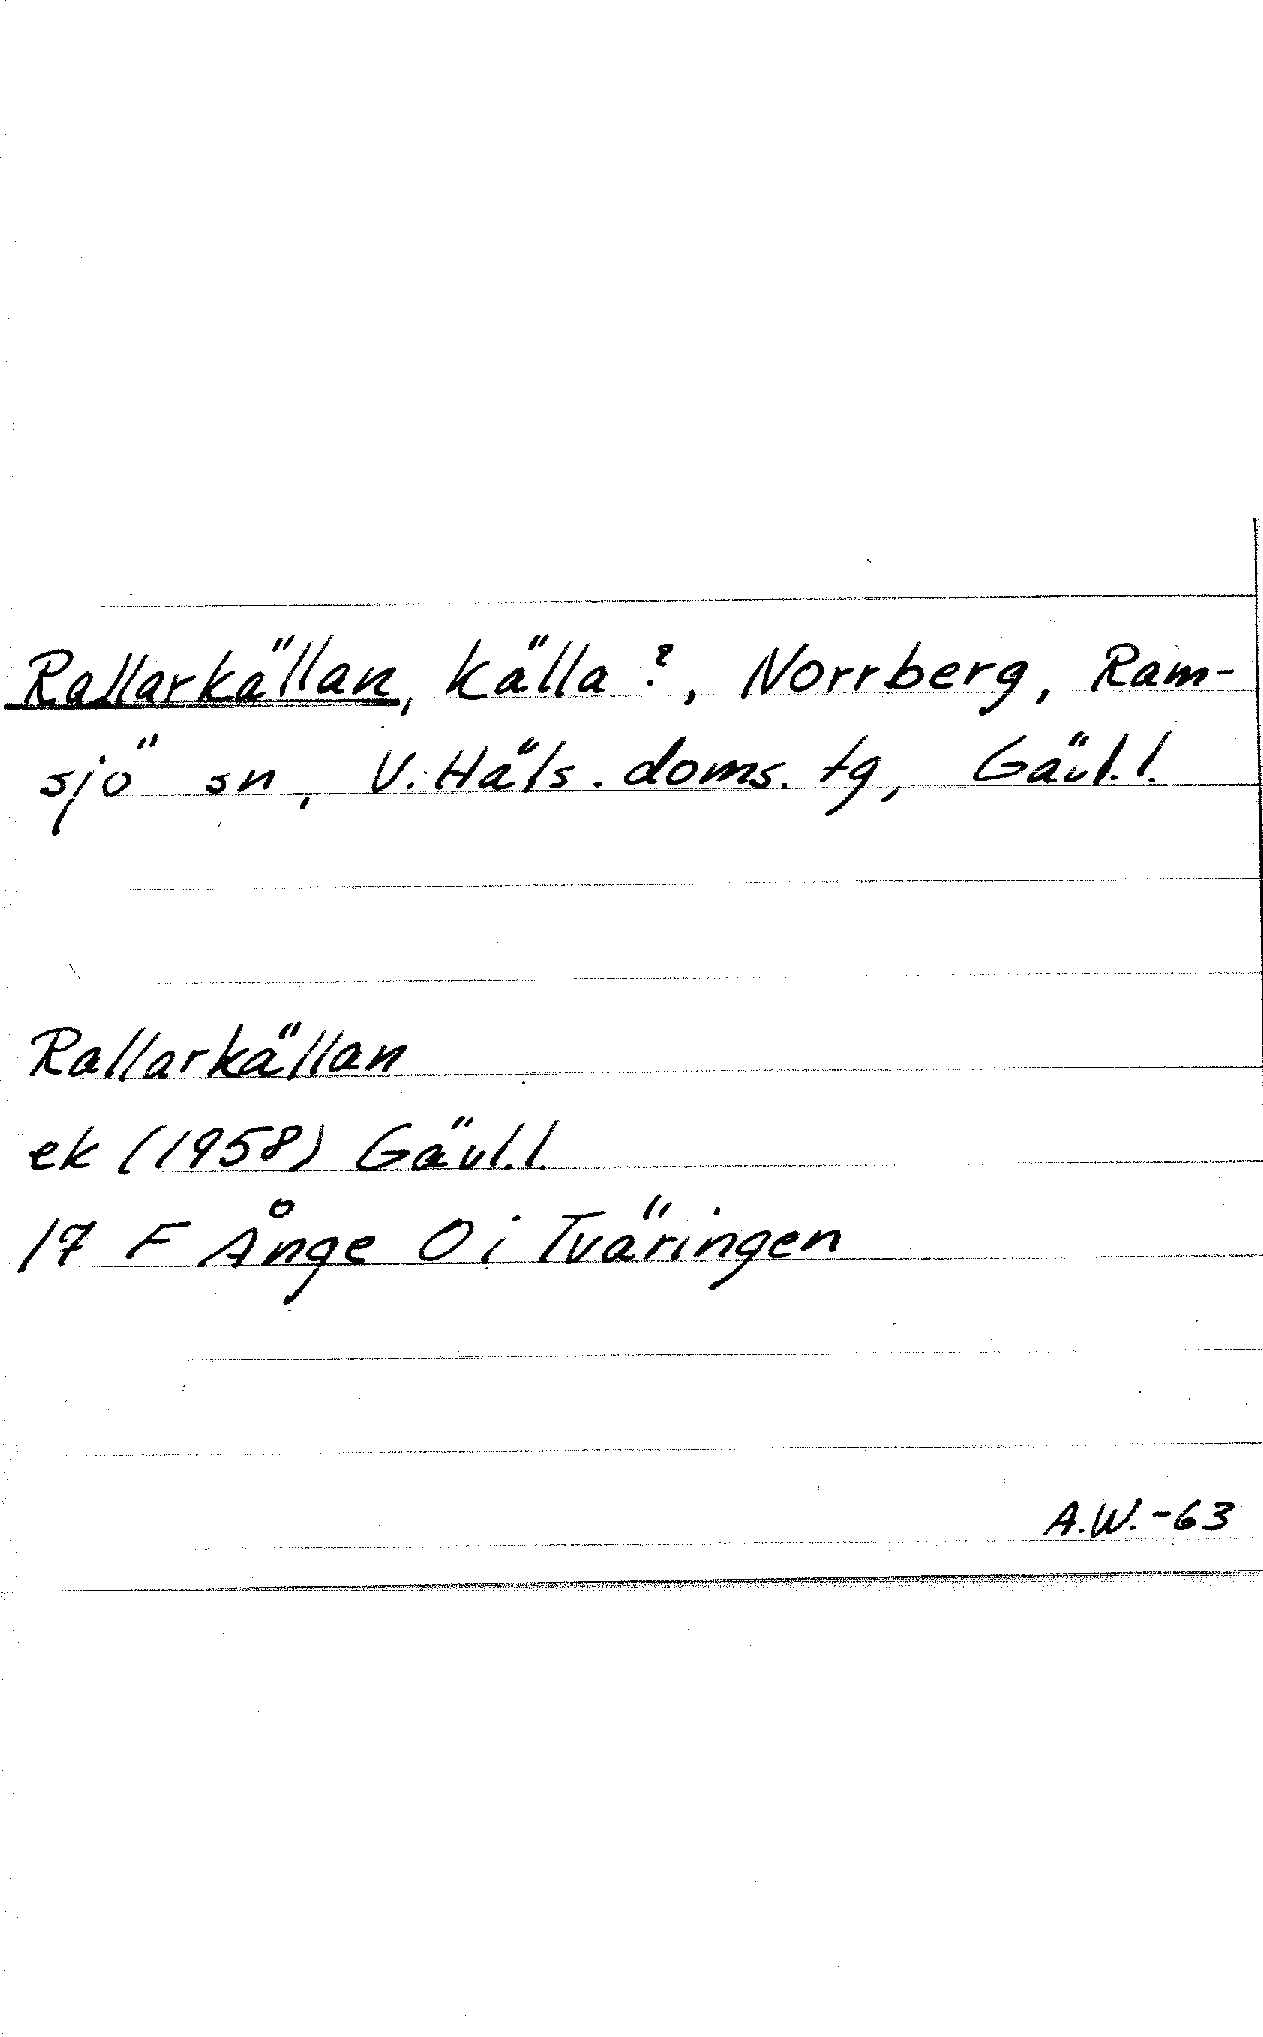 Rallarkällan, källa?, Norrberg, Ram-
sjö sn, V. Häls. doms. tg, Gävl.l.
Rallarkällan
ek (1958) Gävl.l.
17 F Ånge O i Tväringen
A.W.-63